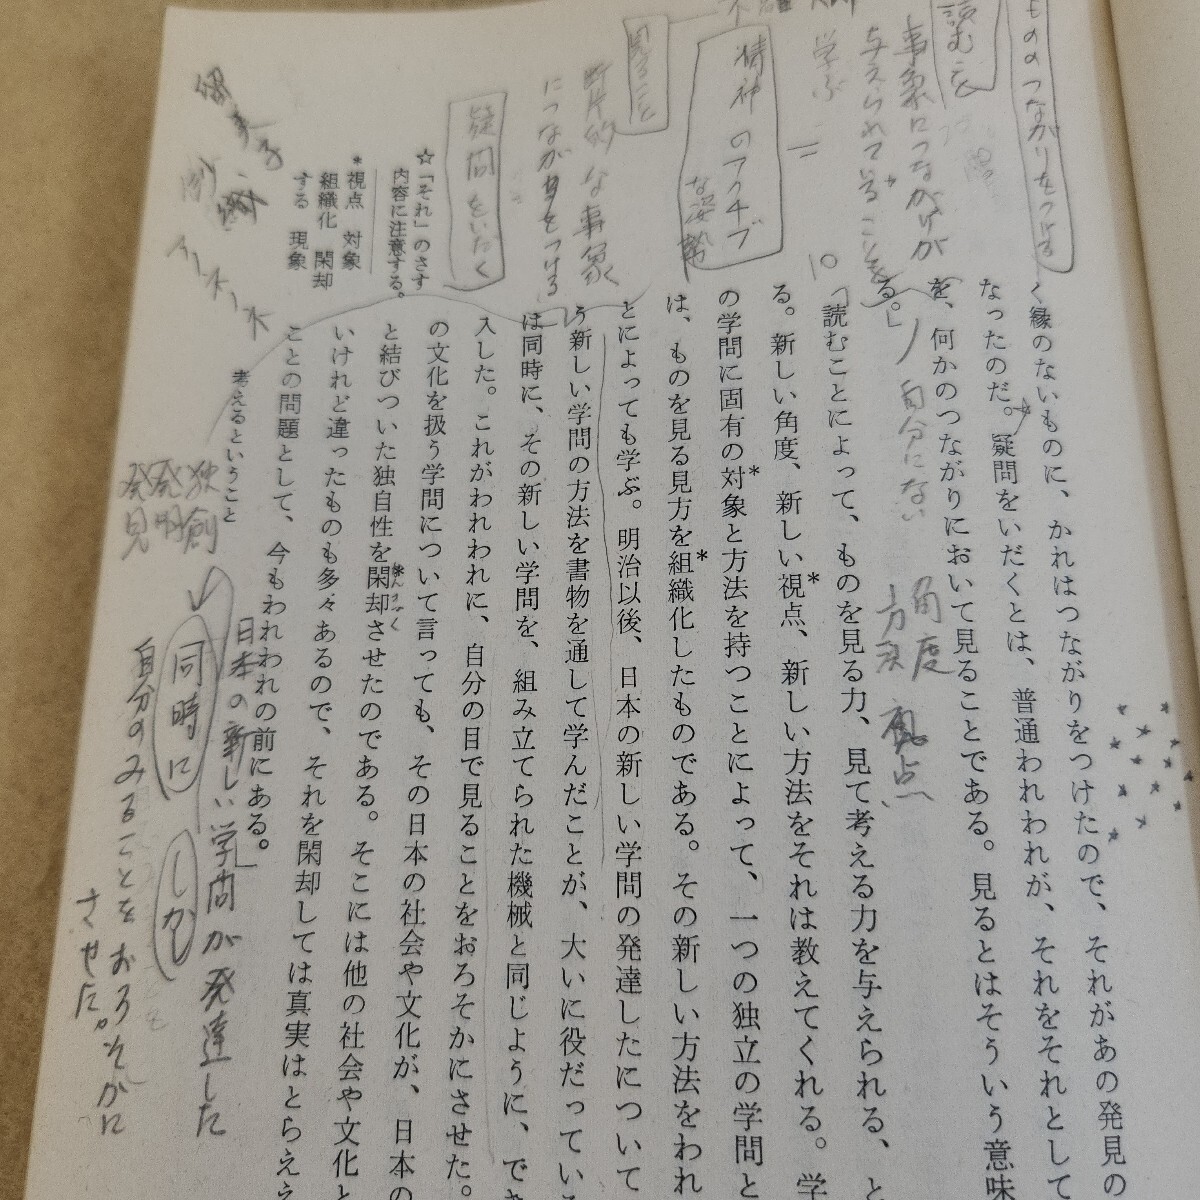 もののつながりをつける
読む
事象につながりが
与えられていることを
学ぶ
＝
精神のアクチブ
な姿勢
断片的な事象
につながりをつける
疑問をいだく
☆「それ」のさす
内容に注意する。
＊視点　対象
組織化　閑却
する　現象
10
く縁のないものに、かれはつながりをつけたので、それがあの発見の
なったのだ。疑問をいだくとは、普通われわれが、それをそれとして
を、何かのつながりにおいて見ることである。見るとはそういう意味
る。」
自分にない
角度
方法
視点
「読むことによって、ものを見る力、見て考える力を与えられる、と
る。新しい角度、新しい視点、新しい方法をそれは教えてくれる。学
の学問に固有の対象と方法を持つことによって、一つの独立の学問と
は、ものを見る見方を組織化したものである。その新しい方法をわれ
とによっても学ぶ。明治以後、日本の新しい学問の発達したについて
う新しい学問の方法を書物を通して学んだことが、大いに役だってい
は同時に、その新しい学問を、組み立てられた機械と同じように、でき
入した。これがわれわれに、自分の目で見ることをおろそかにさせた。
の文化を扱う学問について言っても、その日本の社会や文化が、日本の
と結びついた独自性を閑却させたのである。そこには他の社会や文化と
いけれど違ったものも多々あるので、それを閑却しては真実はとらええ
ことの問題として、今もわれわれの前にある。」
考えるということ
独創
発明
発見
日本の新しい学問が発達した
同時に
しかし
自分のみることをおろそかに
させた。